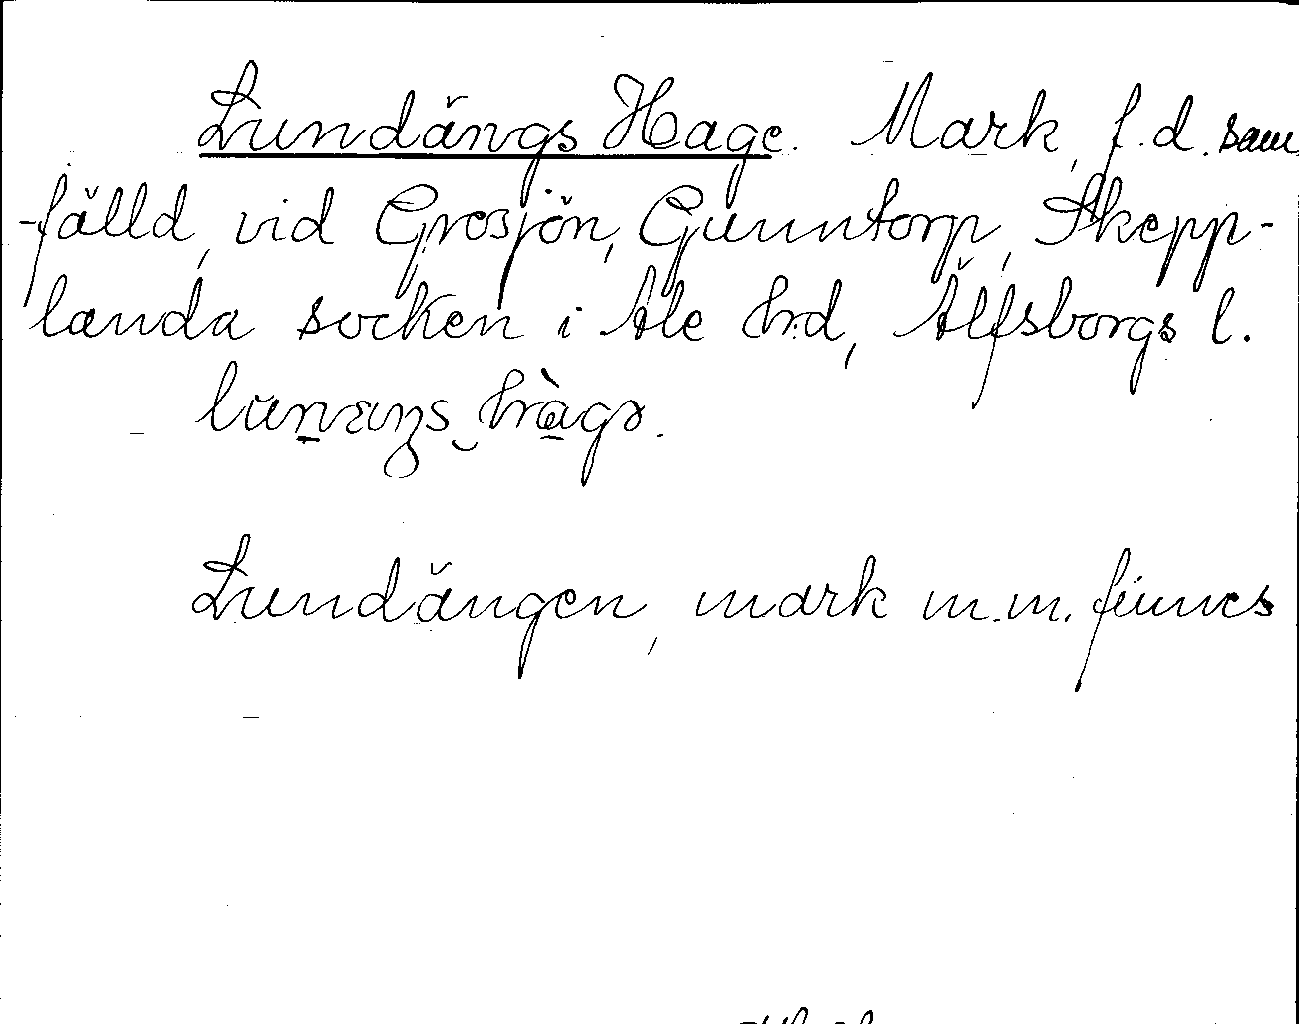 Lundängs Hage. Mark, f.d. sam
-fälld, vid Grosjön, Gunntorp, Skepp-
landa socken i Ale hrd, Älfsborgs l.
Lundängen, mark m.m. finnes